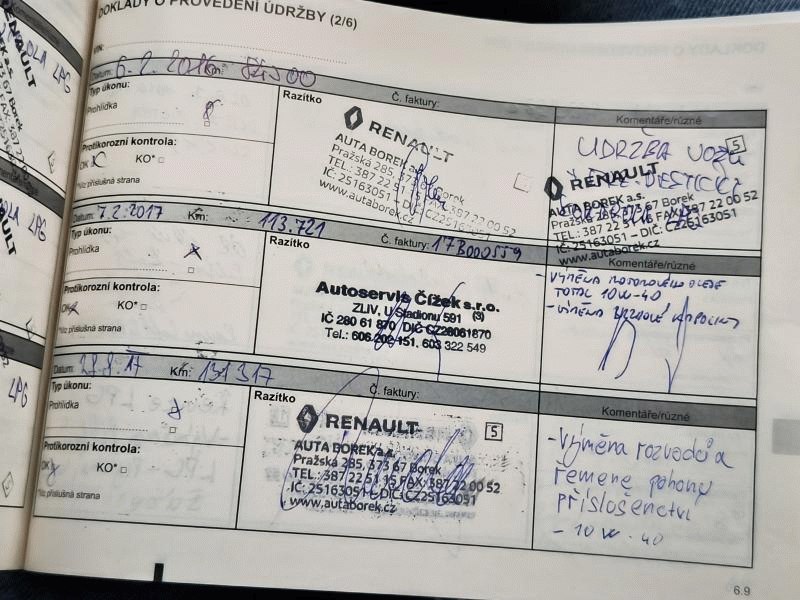 DOKLADY O PROVEDENÍ ÚDRŽBY (2/6)
VIN:
Datum: 6.2.2016 Km:
Typ úkonu:
Prohlídka
Protikorozní kontrola:
OK KO* □
*Viz příslušná strana
Razítko
Č. faktury:
RENAULT
AUTA BOREK a.s.
Pražská 285, 373 67 Borek
TEL.: 387 22 51 15 FAX: 387 22 00 52
IČ: 25163051 – DIČ: CZ25163051
www.autaborek.cz
Komentáře/různé
5
ÚDRŽBA VOZU
RENAULT
AUTA BOREK a.s.
Pražská 285, 373 67 Borek
TEL.: 387 22 51 15 FAX: 387 22 00 52
IČ: 25163051 – DIČ: CZ25163051
www.autaborek.cz
Datum: 7.2.2017 Km: 113.721
Typ úkonu:
Prohlídka
Protikorozní kontrola:
OK KO* □
*Viz příslušná strana
Razítko
Č. faktury: 17B000559
Autoservis Čížek s.r.o.
ZLIV, U Stadionu 591 (3)
IČ 280 61 870 DIČ CZ28061870
Tel.: 606 202 151, 603 322 549
Komentáře/různé
- VÝMĚNA MOTOROVÉHO OLEJE
TOTAL 10W-40
- VÝMĚNA BRZDOVÉ KAPALINY
Datum: 28.8.17 Km: 131317
Typ úkonu:
Prohlídka
Protikorozní kontrola:
OK KO* □
*Viz příslušná strana
Razítko
Č. faktury:
RENAULT
5
AUTA BOREK a.s.
Pražská 285, 373 67 Borek
TEL.: 387 22 51 15 FAX: 387 22 00 52
IČ: 25163051 – DIČ: CZ25163051
www.autaborek.cz
Komentáře/různé
- Výměna rozvodů a
řemene pohonu
příslušenství
- 10W-40
6.9